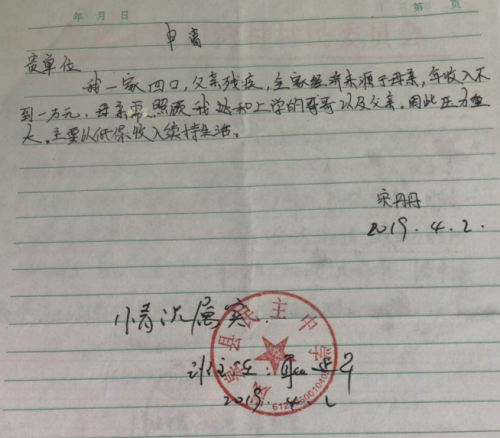 年 月 日 第 页
申请
贵单位
我一家四口,父亲残疾,全家经济来源于母亲,年收入不
到一万元,母亲需照顾我还和上学的哥哥以及父亲.因此压力重
大.主要以低保收入维持生活。
宋丹丹
2019.4.2.
情况属实.
县民主中学
班主任:
2019.4.2